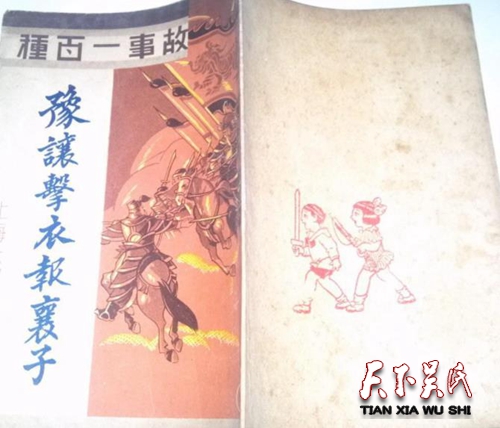 故事一百種
豫讓擊衣報襄子
天下吴氏
TIAN XIA WU SHI